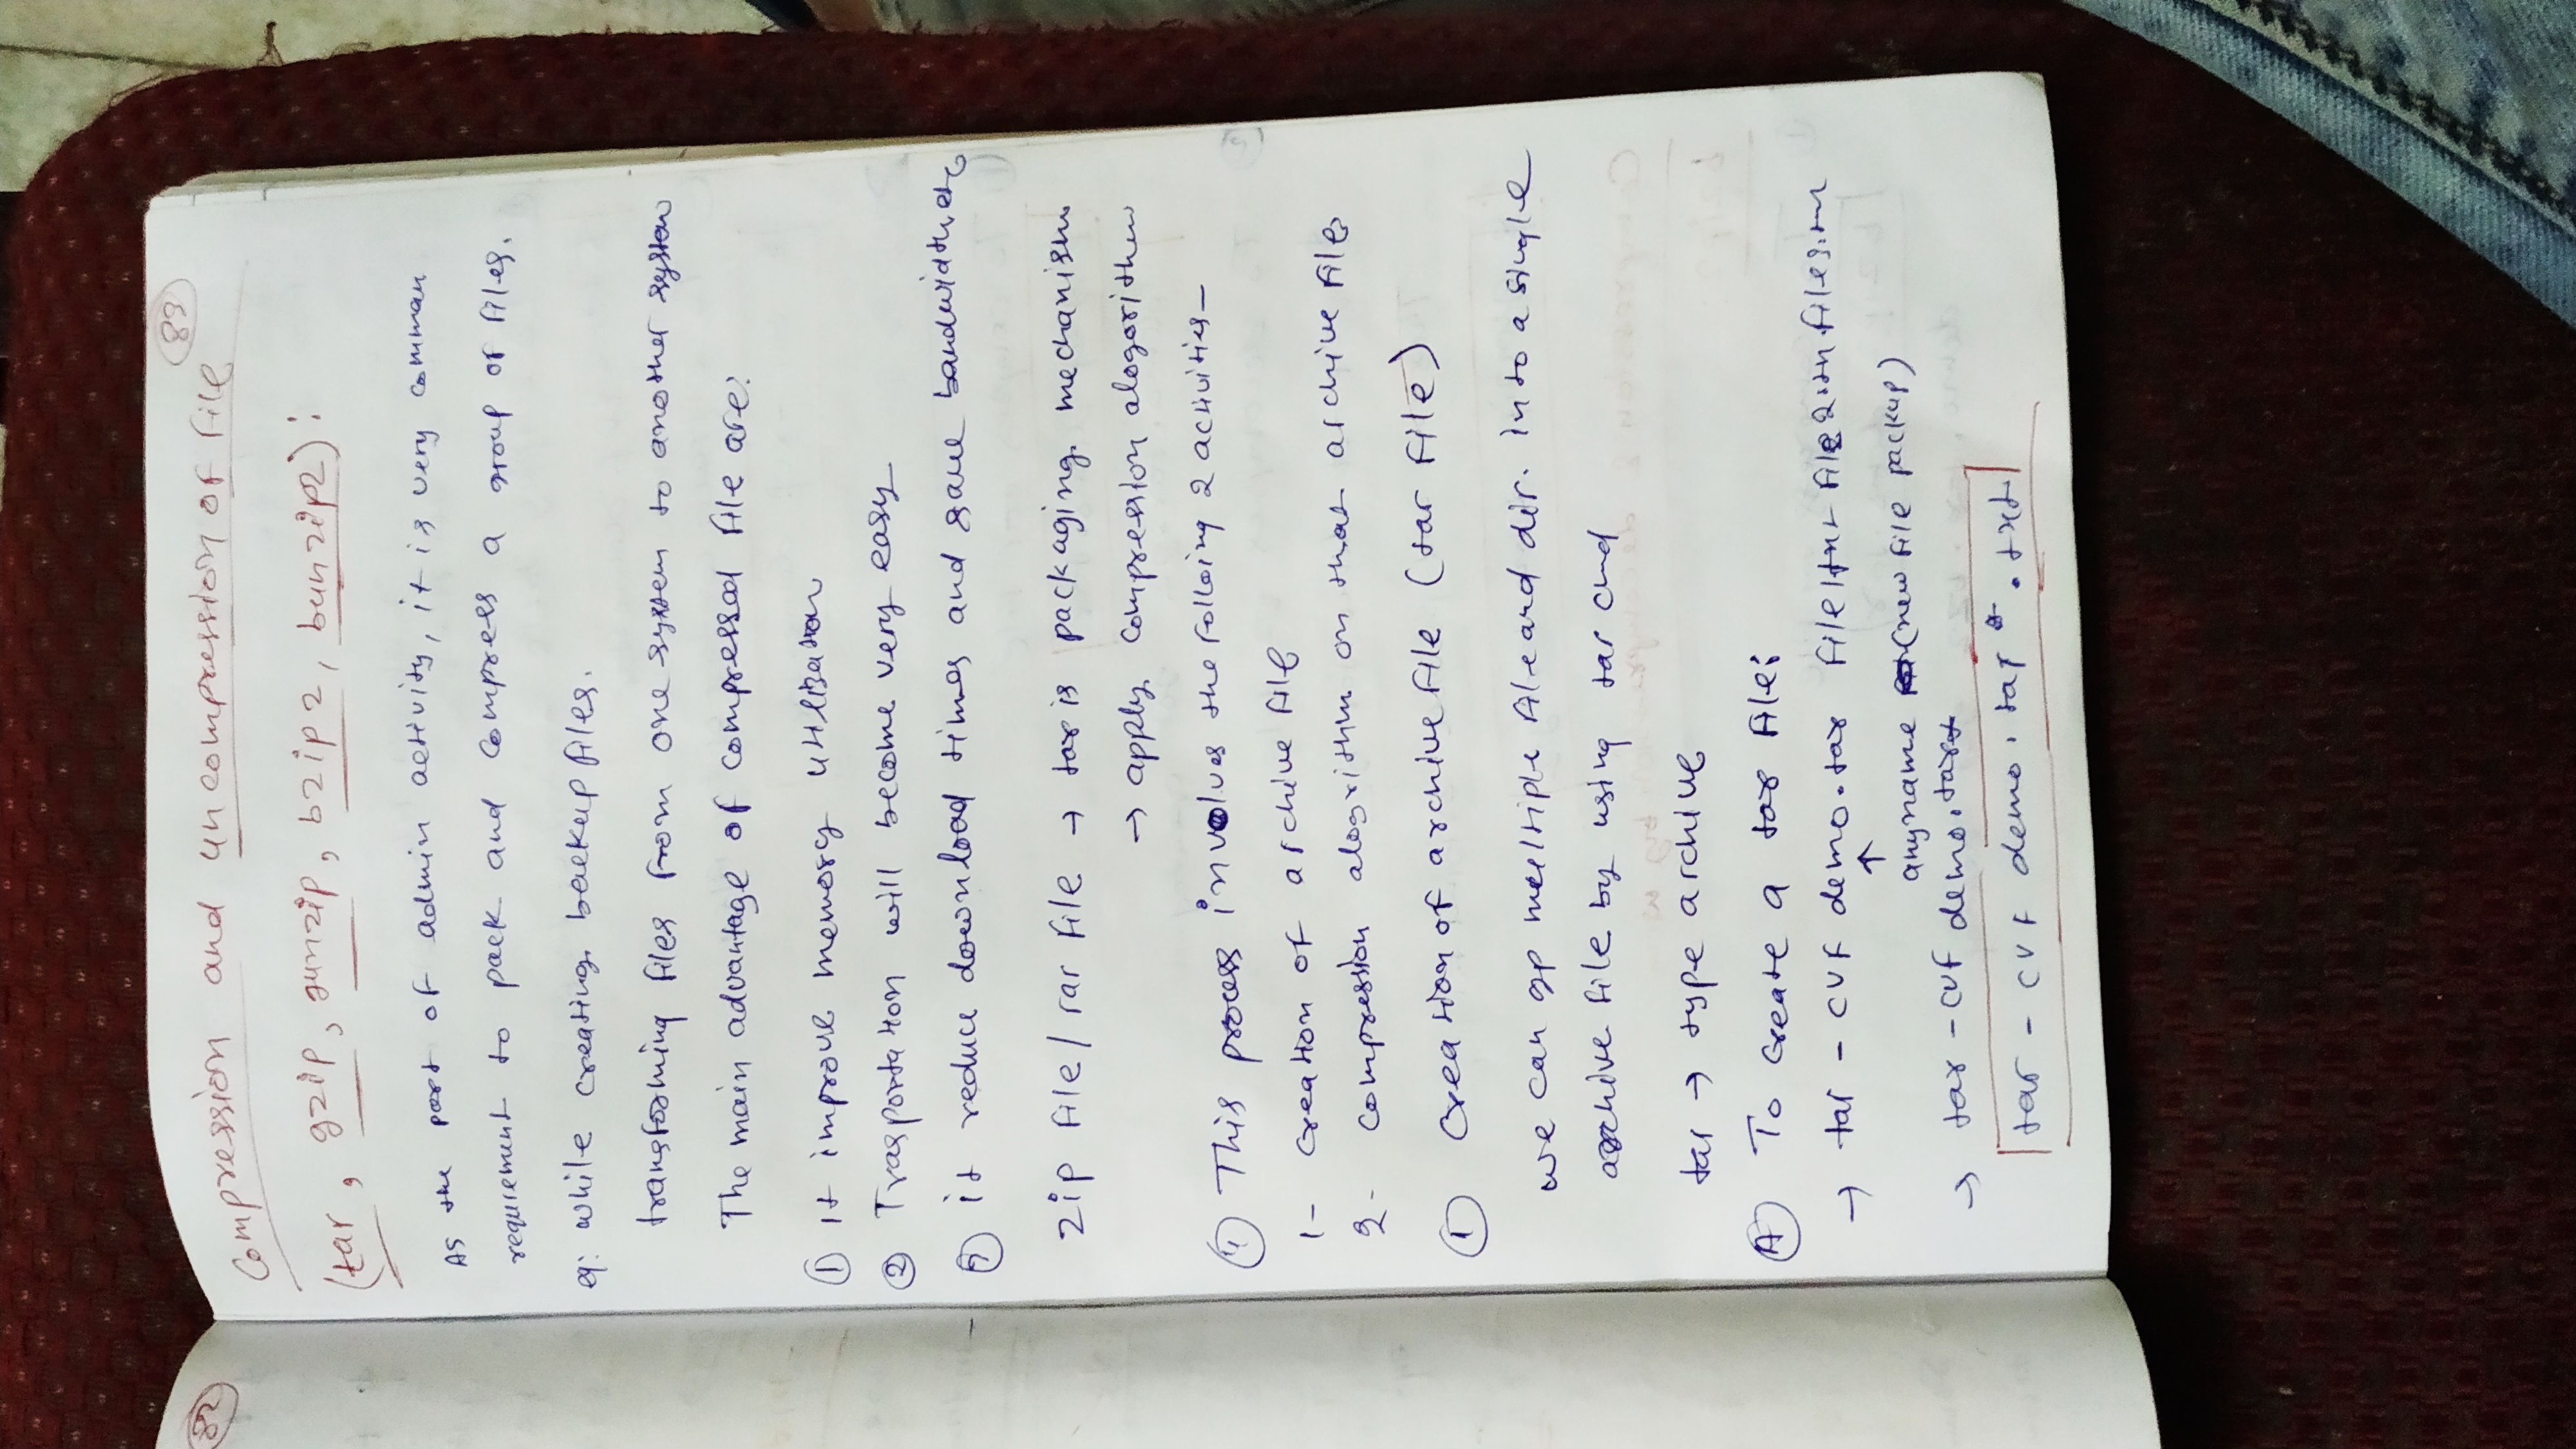 82
83
Compression and uncompression of file
(tar, gzip, gunzip, bzip2, bunzip2):
As the part of admin activity, it is very common
requirement to pack and compress a group of files.
eg: while creating backup files.
transforming files from one system to another system
The main advantage of compressed file are:
① it improve memory utilisation
② Trasportation will become very easy
it reduce download times and save bandwidth etc
zip file/rar file → tar is packaging mechanism
→ apply compression alogorithm
This process involves the following 2 activities-
1- Creation of archive file
2- compression alogrithm on that archive files
① Creation of archive file (tar file)
we can gp multiple file and dir. into a single
archive file by using tar cmd
tar → type archive
Ⓐ To Create a tar file:
→ tar -cvf demo.tar file1txt file2.txt file3.txt
↑
anyname (new file packup)
→ tar -cvf demo.tar
tar -cvf demo.tar *.txt